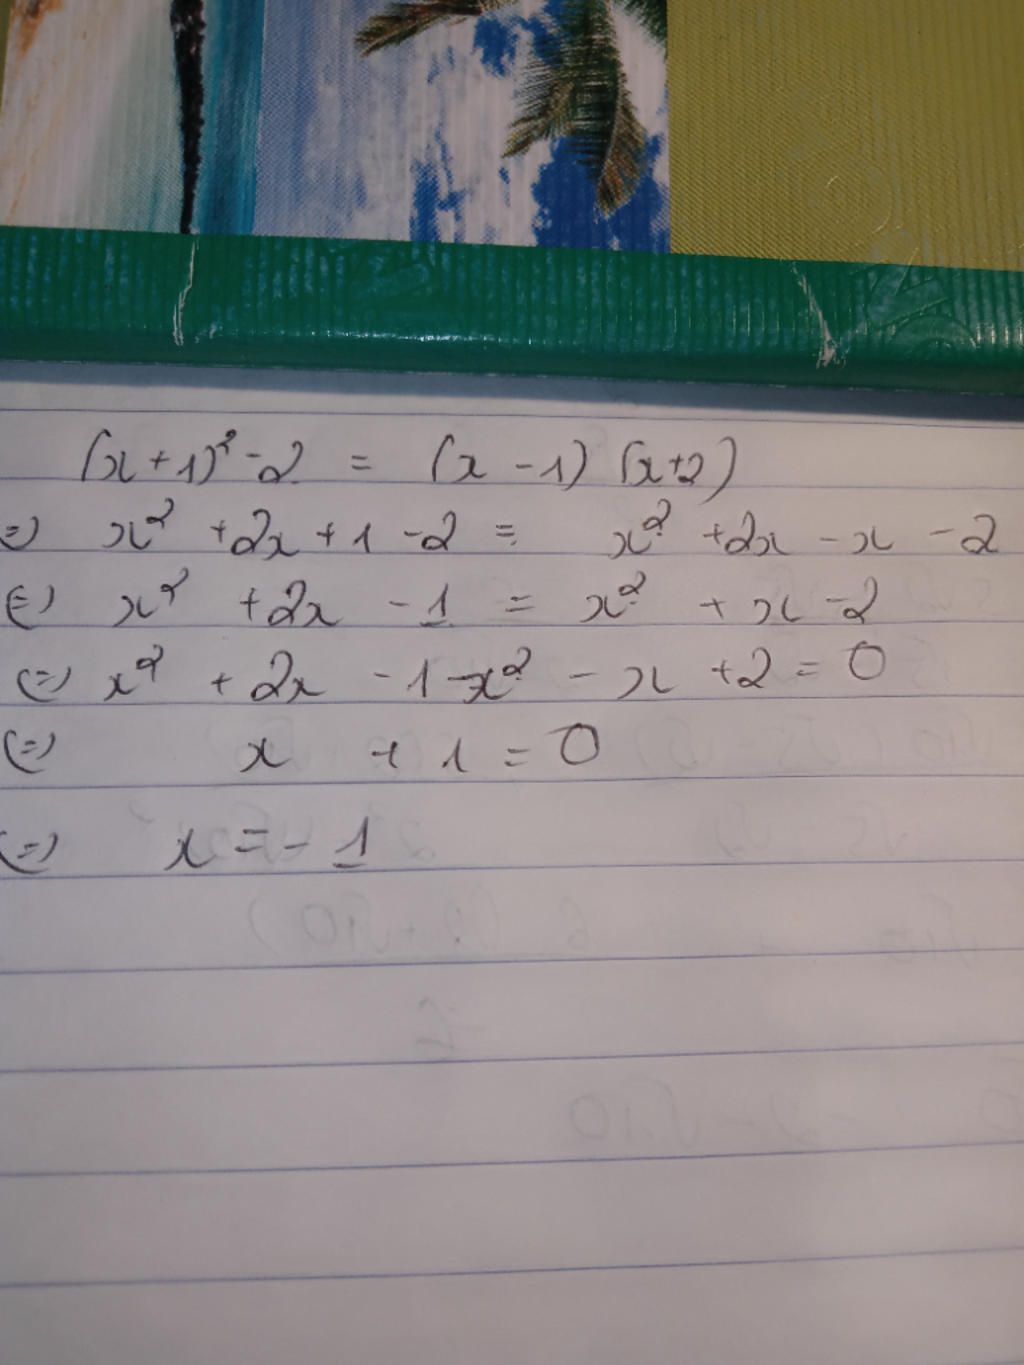 (x+1)² - 2 = (x - 1) (x+2)
=) x² + 2x + 1 - 2 = x² + 2x - x - 2
(=) x² + 2x - 1 = x² + x - 2
(=) x² + 2x - 1 - x² - x + 2 = 0
(=) x + 1 = 0
(=) x = - 1